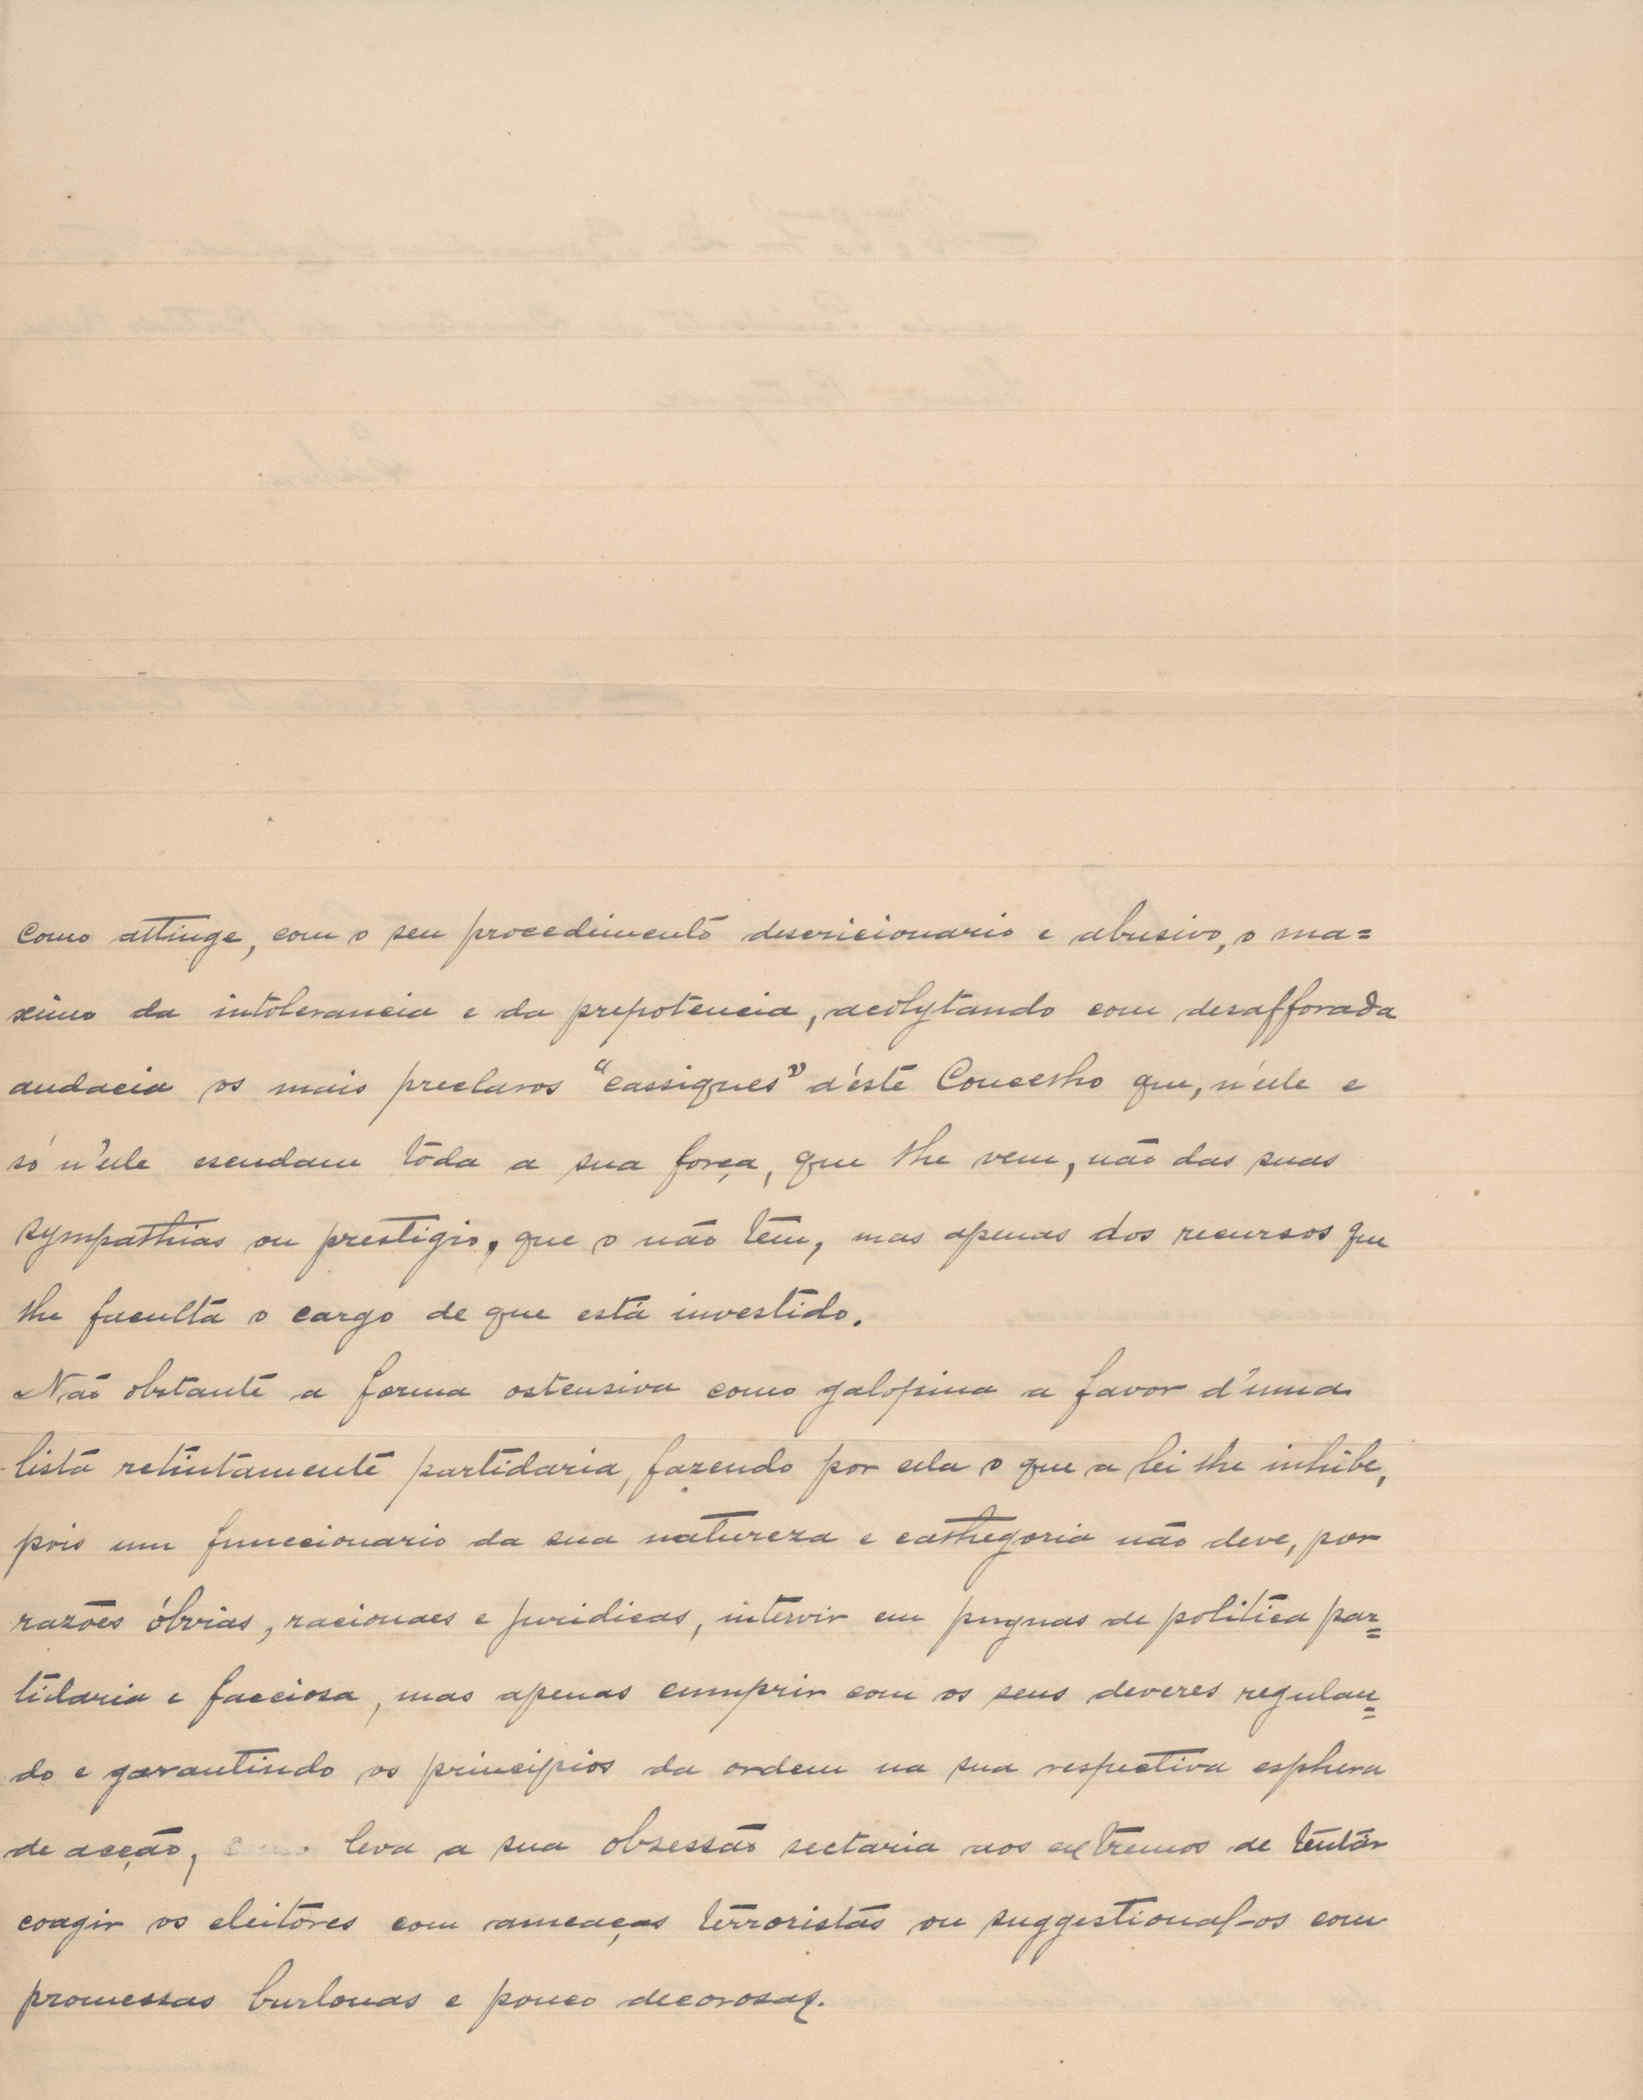 como attinge, com o seu procedimento descricionario e abusivo, o ma=
ximo da intolerancia e da prepotencia, acolytando com desafforada
audacia os mais preclaros "cassiques" d'éste Concelho que, n'ele e
só n'ele escudam tôda a sua força, que lhe vem, não das suas
sympathias ou prestigio, que o não tem, mas apenas dos recursos que
lhe faculta o cargo de que está investido.
Não obstante a forma ostensiva como galopina a favor d'uma
lista retintamente partidaria, fazendo por ela o que a lei lhe inhibe,
pois um funccionario da sua natureza e cathegoria não deve, por
razões óbvias, racionaes e juridicas, intervir em pugnas de politica par=
tidaria e facciosa, mas apenas cumprir com os seus deveres regulan=
do e garantindo os principios da ordem na sua respectiva esphera
de acção, leva a sua obsessão sectaria aos extremos de tentar
coagir os eleitores com ameaças terroristas ou suggestional-os com
promessas burlonas e pouco decorosas.